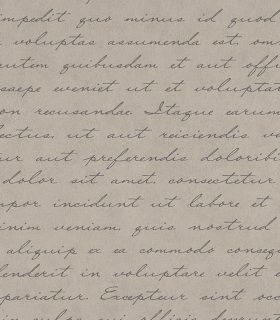 impedit quo minus id quod
voluptas assumenda est, om
autem quibusdam et aut offi
saepe eveniet ut et voluptat
on recusandae. Itaque earum
lectus, ut aut reiciendis vo
ur aut preferendis doloribi
dolor sit amet, consectetur
por incididunt ut labore et
inim veniam, quis nostrud
aliquip ex ea commodo consequ
henderit in voluptare velit e
pariatur. Excepteur sint occ
in culpa qui officia deserunt